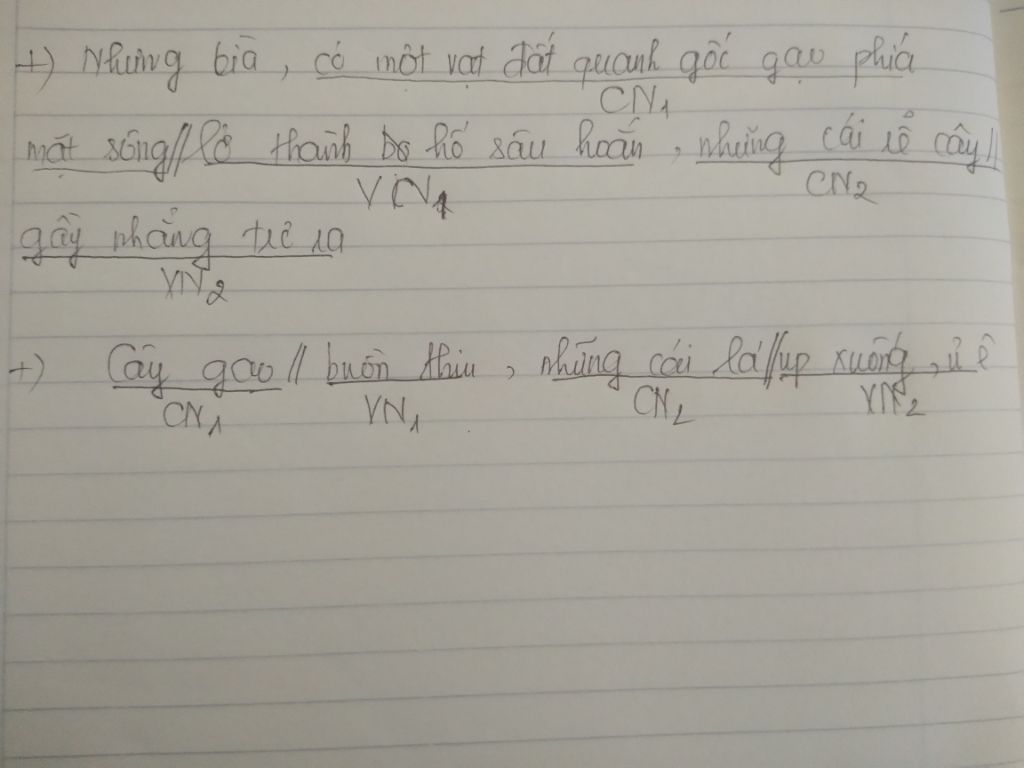 +) Nhưng bià, có một vạt đất quanh gốc gạo phiá
CN1
mặt sông// lở thành bọ hố sâu hoắn, những cái rễ cây//
VCN1 CN2
gầy nhẳng trẻ ra
VN2
+) Cây gạo// buồn thiu, những cái lá//ụp xuống, ủ ê
CN1 VN1 CN2 VN2